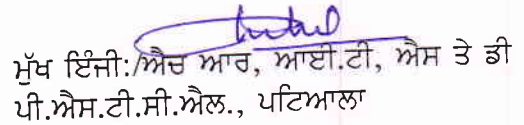 ਮੁੱਖ ਇੰਜੀ:/ਐਚ ਆਰ, ਆਈ.ਟੀ, ਐਸ ਤੇ ਡੀ
ਪੀ.ਐਸ.ਟੀ.ਸੀ.ਐਲ., ਪਟਿਆਲਾ